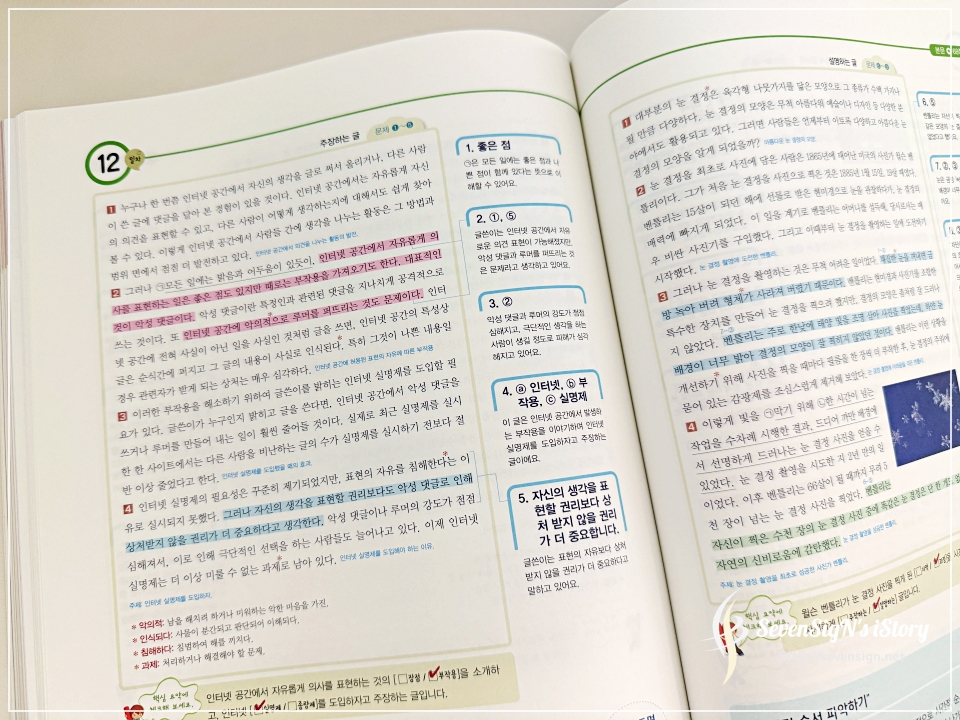 12 일차
주장하는 글
문제 1~5
1 누구나 한 번쯤 인터넷 공간에서 자신의 생각을 글로 써서 올리거나, 다른 사람
이 쓴 글에 댓글을 달아 본 경험이 있을 것이다. 인터넷 공간에서는 자유롭게 자신
의 의견을 표현할 수 있고, 다른 사람이 어떻게 생각하는지에 대해서도 쉽게 찾아
볼 수 있다. 이렇게 인터넷 공간에서 사람들 간에 생각을 나누는 활동은 그 방법과
범위 면에서 점점 더 발전하고 있다. 인터넷 공간에서 의견을 나누는 활동의 발전
2 그러나 ㉠모든 일에는 밝음과 어두움이 있듯이, 인터넷 공간에서 자유롭게 의
사를 표현하는 일은 좋은 점도 있지만 때로는 부작용을 가져오기도 한다. 대표적인
것이 악성 댓글이다. 악성 댓글이란 특정인과 관련된 댓글을 지나치게 공격적으로
쓰는 것이다. 또 인터넷 공간에 악의적*으로 루머를 퍼뜨리는 것도 문제이다. 인터
넷 공간에 전혀 사실이 아닌 일을 사실인 것처럼 글을 쓰면, 인터넷 공간의 특성상
글은 순식간에 퍼지고 그 글의 내용이 사실로 인식된다*. 특히 그것이 나쁜 내용일
경우 관련자가 받게 되는 상처는 매우 심각하다. 인터넷 공간에 허용된 표현의 자유에 따른 부작용
3 이러한 부작용을 해소하기 위하여 글쓴이를 밝히는 인터넷 실명제를 도입할 필
요가 있다. 글쓴이가 누구인지 밝히고 글을 쓴다면, 인터넷 공간에서 악성 댓글을
쓰거나 루머를 만들어 내는 일이 훨씬 줄어들 것이다. 실제로 최근 실명제를 실시
한 한 사이트에서는 다른 사람을 비난하는 글의 수가 실명제를 실시하기 전보다 절
반 이상 줄었다고 한다. 인터넷 실명제를 도입했을 때의 효과.
4 인터넷 실명제의 필요성은 꾸준히 제기되었지만, 표현의 자유를 침해한다*는 이
유로 실시되지 못했다. 그러나 자신의 생각을 표현할 권리보다도 악성 댓글로 인해
상처받지 않을 권리가 더 중요하다고 생각한다. 악성 댓글이나 루머의 강도가 점점
심해져서, 이로 인해 극단적인 선택을 하는 사람들도 늘어나고 있다. 이제 인터넷
실명제는 더 이상 미룰 수 없는 과제*로 남아 있다. 인터넷 실명제를 도입해야 하는 이유.
주제: 인터넷 실명제를 도입하자.
* 악의적: 남을 해치려 하거나 미워하는 악한 마음을 가진.
* 인식되다: 사물이 분간되고 판단되어 이해되다.
* 침해하다: 침범하여 해를 끼치다.
* 과제: 처리하거나 해결해야 할 문제.
핵심 요약에
인터넷 공간에서 자유롭게 의사를 표현하는 것의 [ □장점 / ☑부작용]을 소개하
고, 인터넷 [☑실명제 / □종량제]를 도입하자고 주장하는 글입니다.
1. 좋은 점
㉠은 모든 일에는 좋은 점과 나
쁜 점이 함께 있다는 뜻으로 이
해할 수 있어요.
2. ①, ⑤
글쓴이는 인터넷 공간에서 자유
로운 의견 표현이 가능해졌지만,
악성 댓글과 루머를 퍼뜨리는 것
은 문제라고 생각하고 있어요.
3. ②
악성 댓글과 루머의 강도가 점점
심해지고, 극단적인 생각을 하는
사람이 생길 정도로 피해가 심각
해지고 있어요.
4. ⓐ 인터넷, ⓑ 부
작용, ⓒ 실명제
이 글은 인터넷 공간에서 발생하
는 부작용을 이야기하며 인터넷
실명제를 도입하자고 주장하는
글이에요.
5. 자신의 생각을 표
현할 권리보다 상
처 받지 않을 권리
가 더 중요합니다.
글쓴이는 표현의 자유보다 상처
받지 않을 권리가 더 중요하다고
말하고 있어요.
본문
설명하는 글
문제 6~8
1 대부분의 눈 결정*은 육각형 나뭇가지를 닮은 모양으로 그 종류가 수백 가지나
될 만큼 다양하다. 눈 결정의 모양은 무척 아름다워 예술이나 디자인 등 다양한 분
야에서도 활용되고 있다. 그러면 사람들은 언제부터 이토록 다양하고 아름다운 눈
결정의 모양을 알게 되었을까? 아름다운 눈 결정의 모양.
2 눈 결정을 최초로 사진에 담은 사람은 1865년에 태어난 미국의 사진가 윌슨 벤
틀리이다. 그가 처음 눈 결정을 사진으로 찍은 것은 1885년 1월 15일, 19살 때였다.
벤틀리는 15살이 되던 해에 선물로 받은 현미경으로 눈을 관찰하다가, 눈 결정의
매력에 빠지게 되었다. 이 일을 계기로 벤틀리는 어머니를 설득해, 당시로서는 매
우 비싼 사진기를 구입했다. 그리고 이때부터 눈 결정을 촬영하는 일에 도전하기
시작했다. 눈 결정 촬영에 도전한 벤틀리.
3 그러나 눈 결정을 촬영하는 것은 무척 어려운 일이었다.
방 녹아 버려 형체*가 사라져 버렸기 때문이다. 벤틀리는 현미경과 사진기를 조합한
특수한 장치를 만들어 눈 결정을 찍으려 했지만, 결정의 모양은 좀처럼 잘 드러나
지 않았다. 벤틀리는 주로 한낮에
배경이 너무 밝아 결정의 모양이 잘 찍히지 않았던 것이다. 벤틀리는 이런 상황을
개선하기* 위해 사진을 찍을 때마다
묻어 있는 감광제를 조심스럽게 제거해 보았다.
4 이렇게 빛을 ㉠막기 위해 ㉡한 시간이 넘는
작업을 수차례 시행한 결과, 드디어 까만 배경에
서 선명하게 드러나는 눈 결정 사진을 얻을 수
있었다. 눈 결정 촬영을 시도한 지 2년 만의 일
이었다. 이후 벤틀리는 66살이 될 때까지 무려 5
천 장이 넘는 눈 결정 사진을 찍었다. 벤틀리는
자신이 찍은 수천 장의 눈 결정 사진 중에 똑같은 눈 결정은 단 한 개도
자연의 신비로움에 감탄했다. 눈 결정 촬영에 성공한 벤틀리.
주제: 눈 결정 촬영을 최초로 성공한 사진가 벤틀리.
핵심 요약에
윌슨 벤틀리가 눈 결정 사진을 찍게 된
SevenSigN's iStory